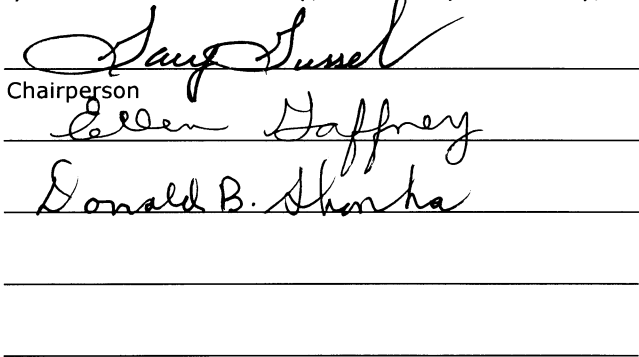 Gary Gussel
Chairperson
Ellen Gaffney
Donald B. Shonka